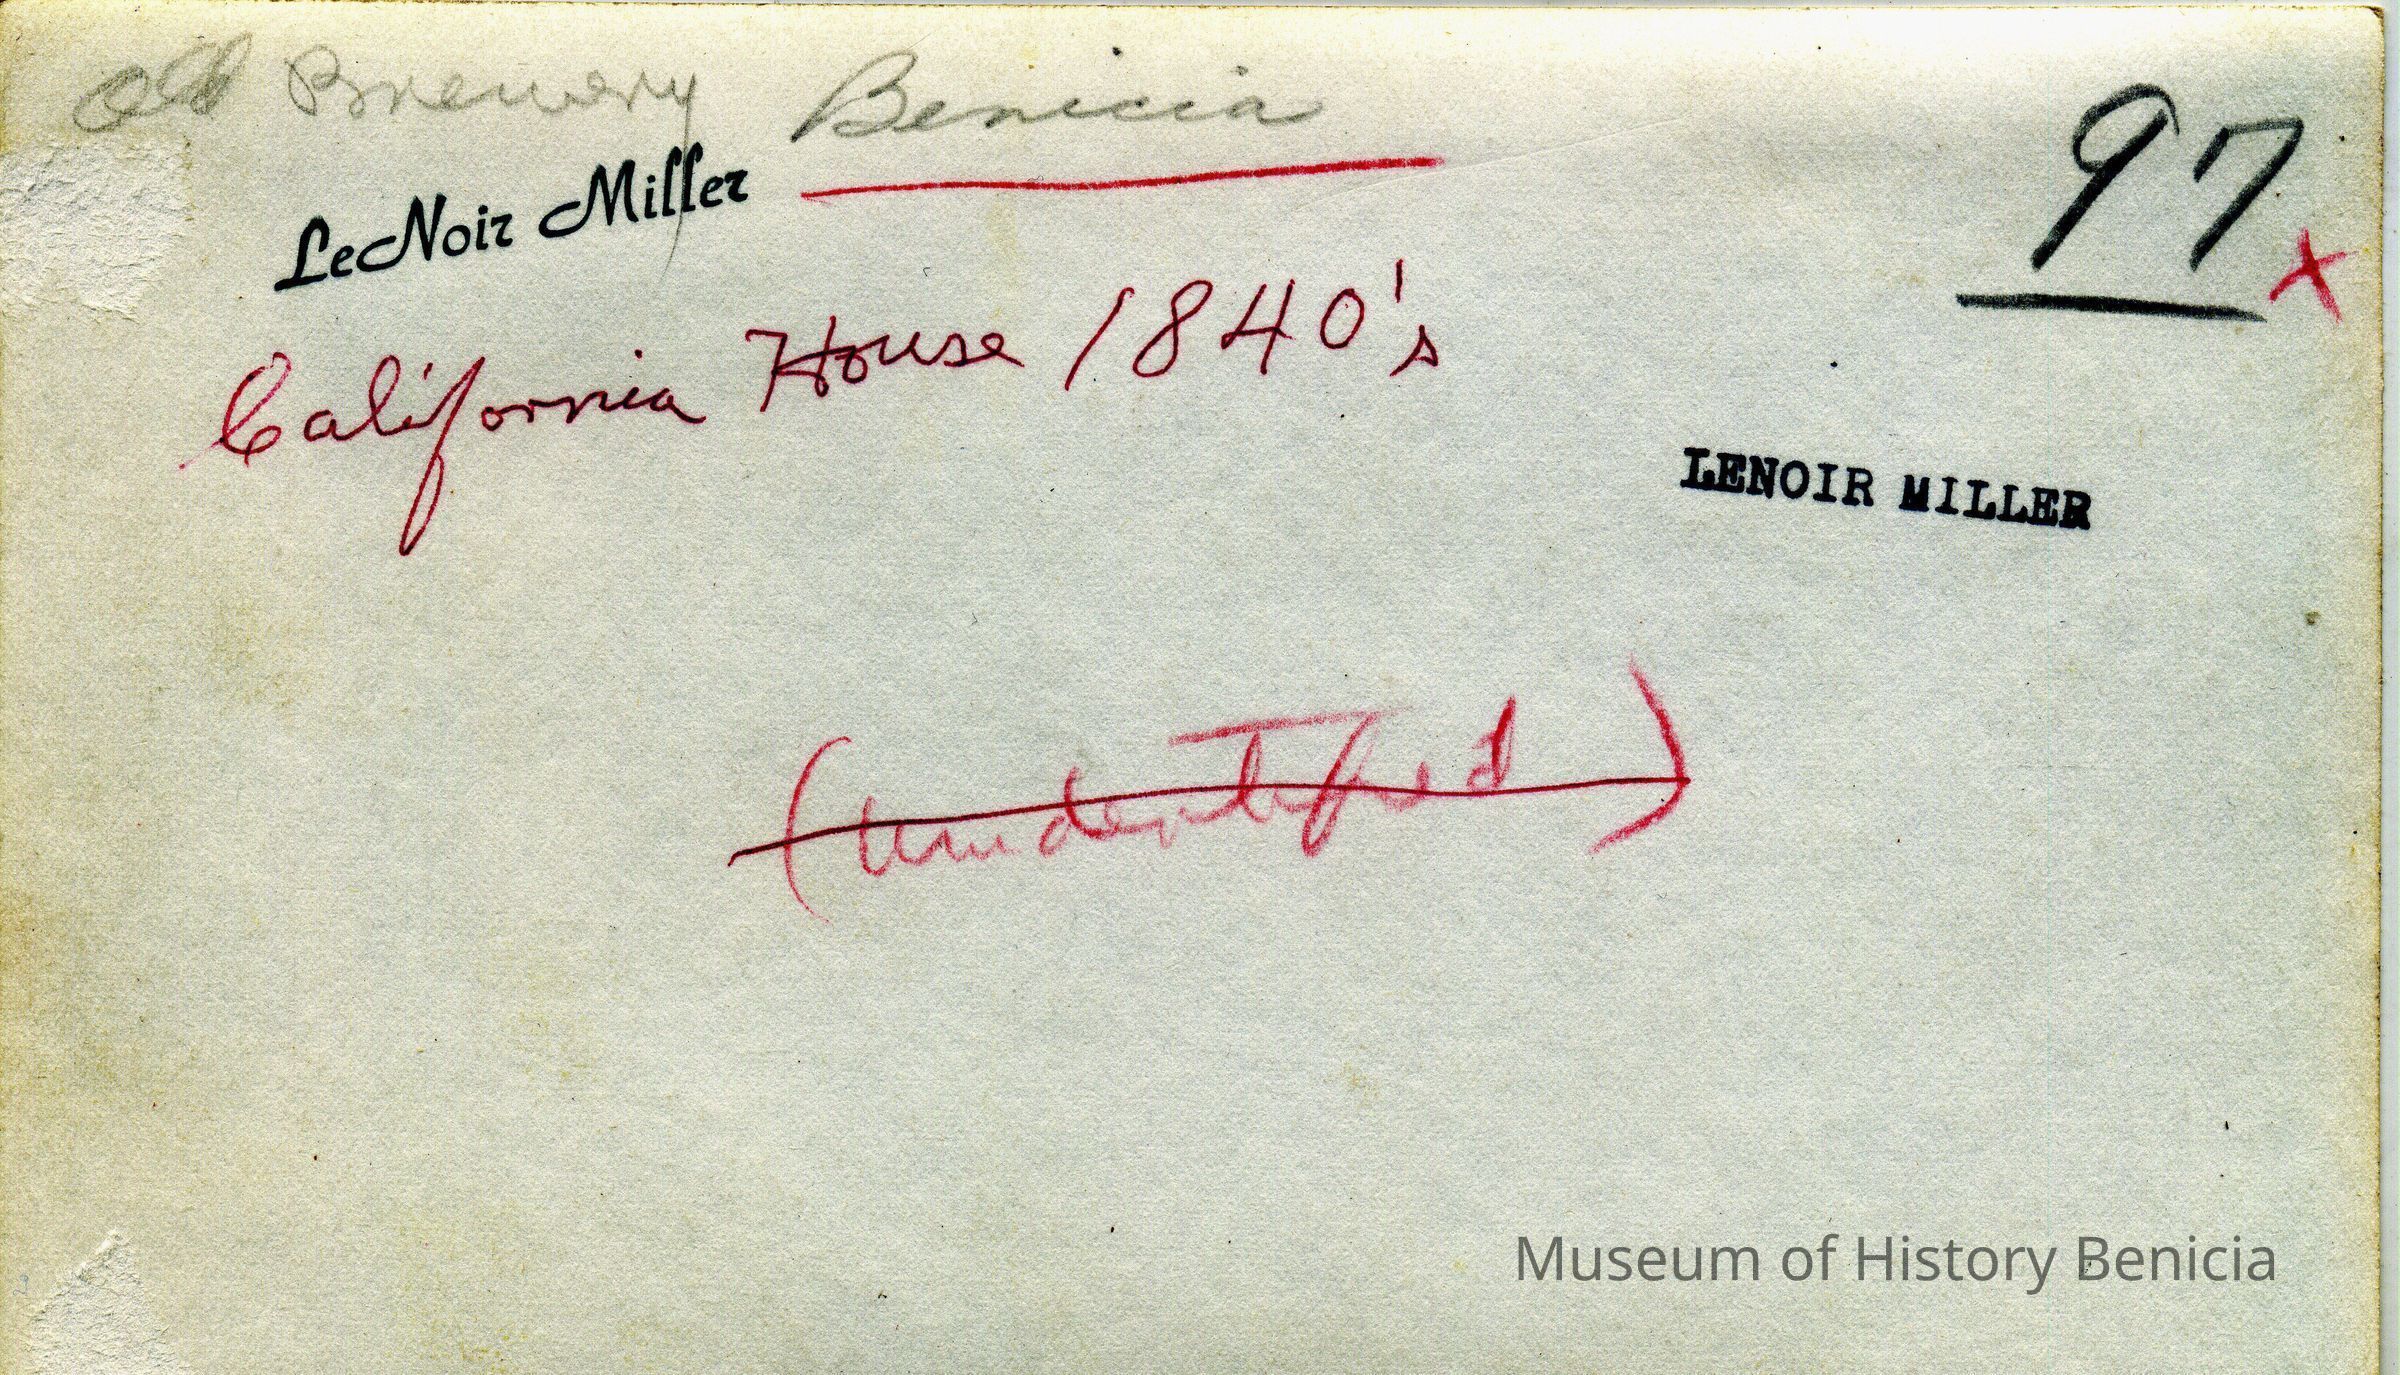 Old Brewery Benicia
97 x
LeNoir Miller
California House 1840's
LENOIR MILLER
(Unidentified)
Museum of History Benicia